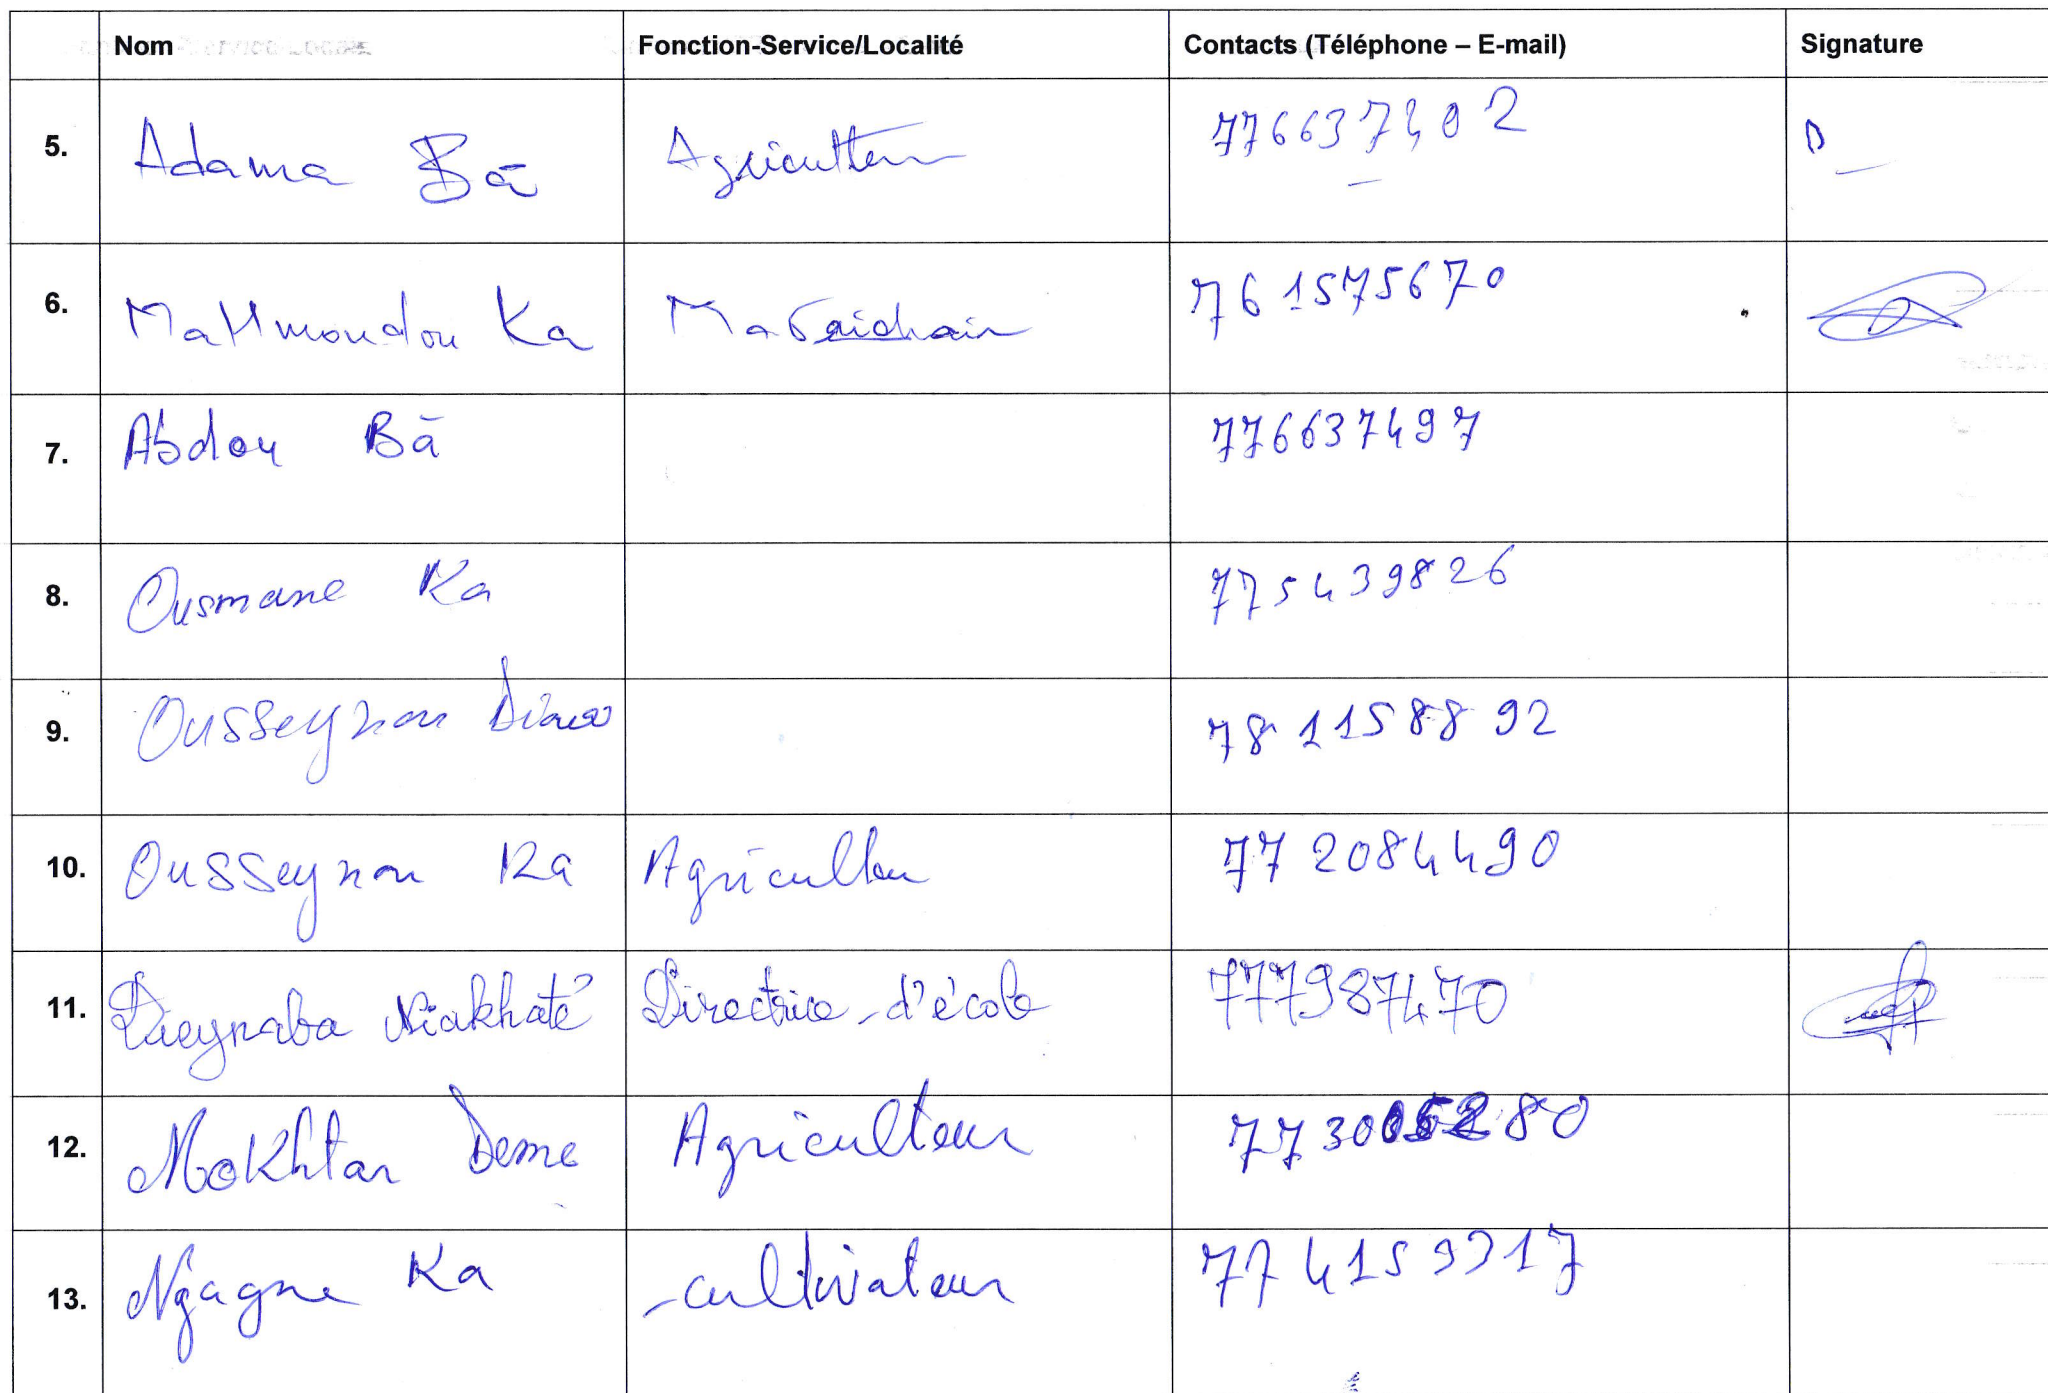 Nom Fonction-Service/Localité Contacts (Téléphone – E-mail) Signature
5. Adama Bā Agriculteur 776637402
6. MaHmoudou Ka Maraichair 76 1575670
7. Abdou Bā 776637497
8. Ousmane Ka 775439826
9. Ousseynou 78 1158892
10. Ousseynou Ka Agriculteur 77 2084490
11. Dieynaba Niakhaté Directrice d'école 777987470
12. Mokhtar Deme Agriculteur
13. Ngagne Ka cultivateur 77 4159317